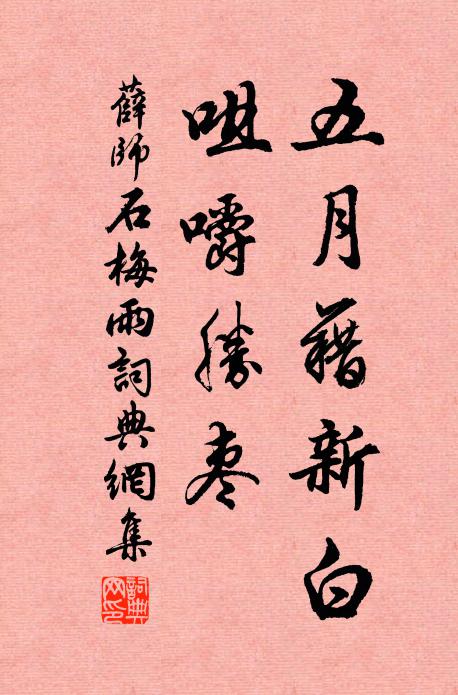 五月藉新白
咀嚼勝枣
薛師石梅雨詞典網集
詞典网印